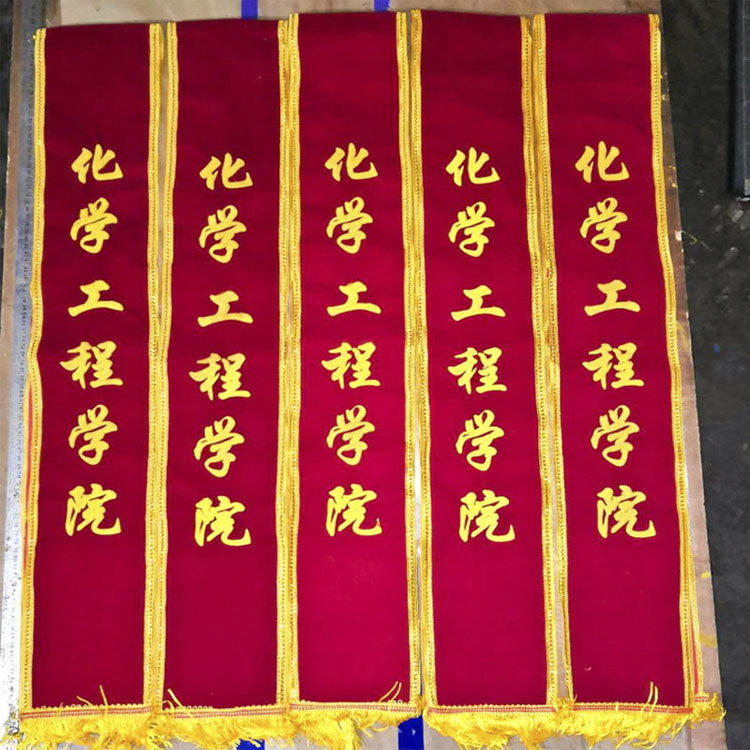 化学工程学院
化学工程学院
化学工程学院
化学工程学院
化学工程学院